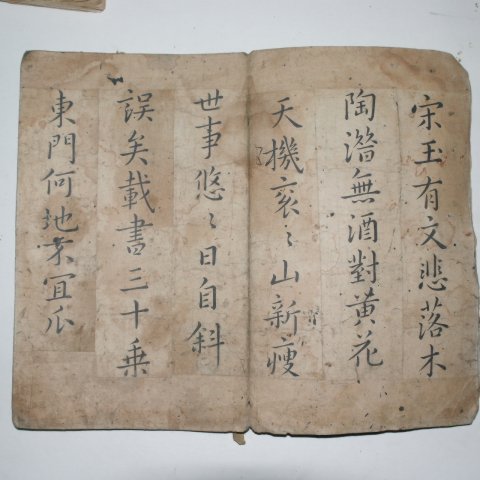 宋玉有文悲落木
陶潛無酒對黃花
天機衮〻山新瘦
世事悠〻日自斜
誤矣載書三十乗
東門何地不冝瓜